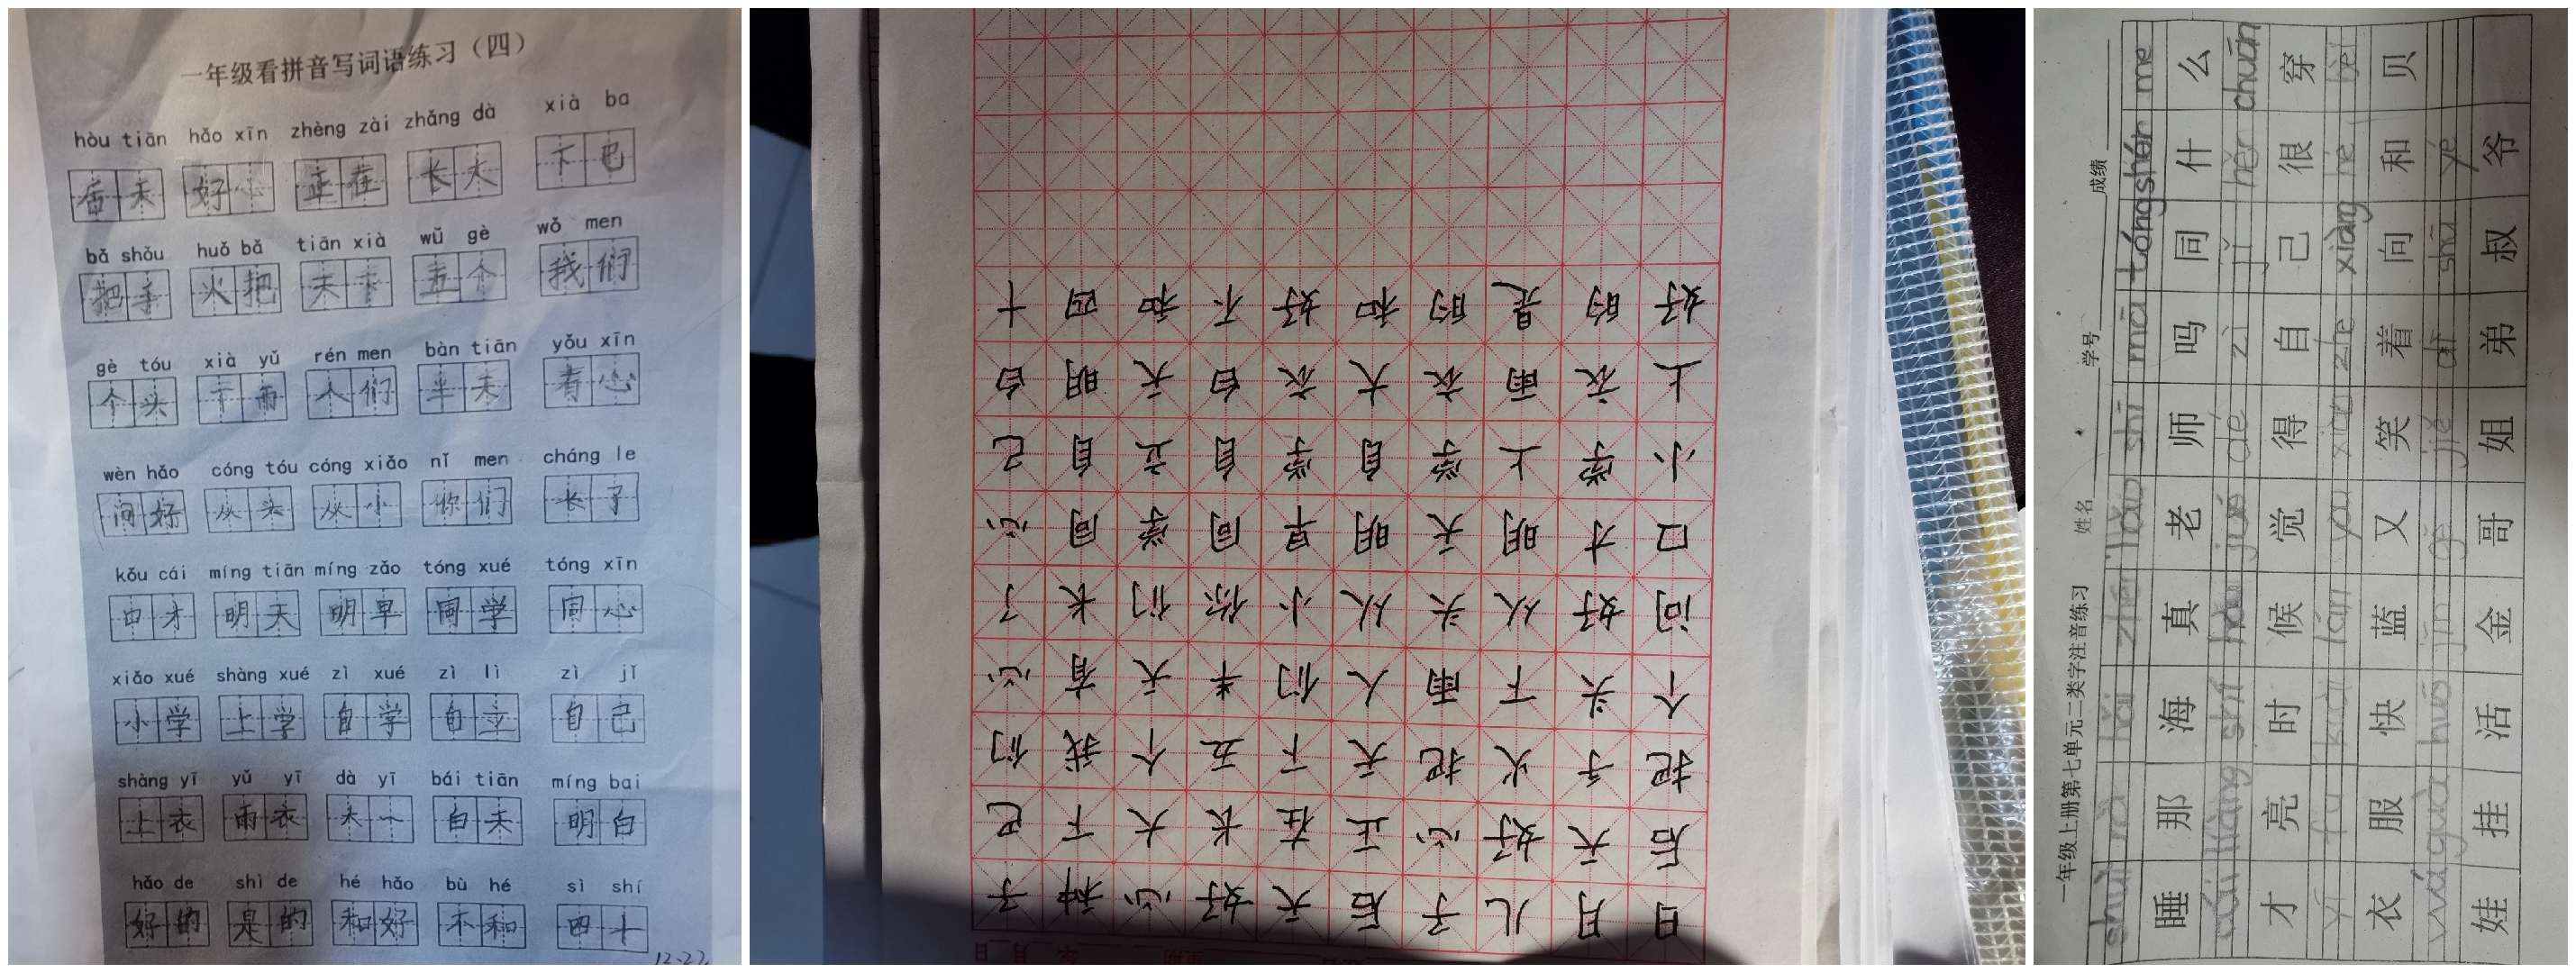 一年级看拼音写词语练习（四）
hòu tiān hǎo xīn zhèng zài zhǎng dà xià ba
后天 好心 正在 长大 下巴
bǎ shǒu huǒ bǎ tiān xià wǔ gè wǒ men
把手 火把 天下 五个 我们
gè tóu xià yǔ rén men bàn tiān yǒu xīn
个头 下雨 人们 半天 有心
wèn hǎo cóng tóu cóng xiǎo nǐ men cháng le
问好 从头 从小 你们 长了
kǒu cái míng tiān míng zǎo tóng xué tóng xīn
口才 明天 明早 同学 同心
xiǎo xué shàng xué zì xué zì lì zì jǐ
小学 上学 自学 自立 自己
shàng yī yǔ yī dà yī bái tiān míng bai
上衣 雨衣 大一 白天 明白
hǎo de shì de hé hǎo bù hé sì shí
好的 是的 和好 不和 四十
12.27
日月儿子后天好心种子
后天好心正在长大下巴
把手火把天下五个我们
个头下雨人们半天有心
问好从头从小你们长了
口才明天明早同学同心
小学上学自学自立自己
上衣雨衣大衣白天明白
好的是的和好不和四十
一年级上册第七单元二类字注音练习 姓名 学号 成绩
shuì nà hǎi zhēn lǎo shī mā tóng shén me
睡 那 海 真 老 师 吗 同 什 么
cái liàng shí hòu jué dé zì jǐ hěn chuān
才 亮 时 候 觉 得 自 己 很 穿
yī fu kuài lán yòu xiào zhe xiàng hé bèi
衣 服 快 蓝 又 笑 着 向 和 贝
wá guà huó jīn gē jiě dì shū yé
娃 挂 活 金 哥 姐 弟 叔 爷